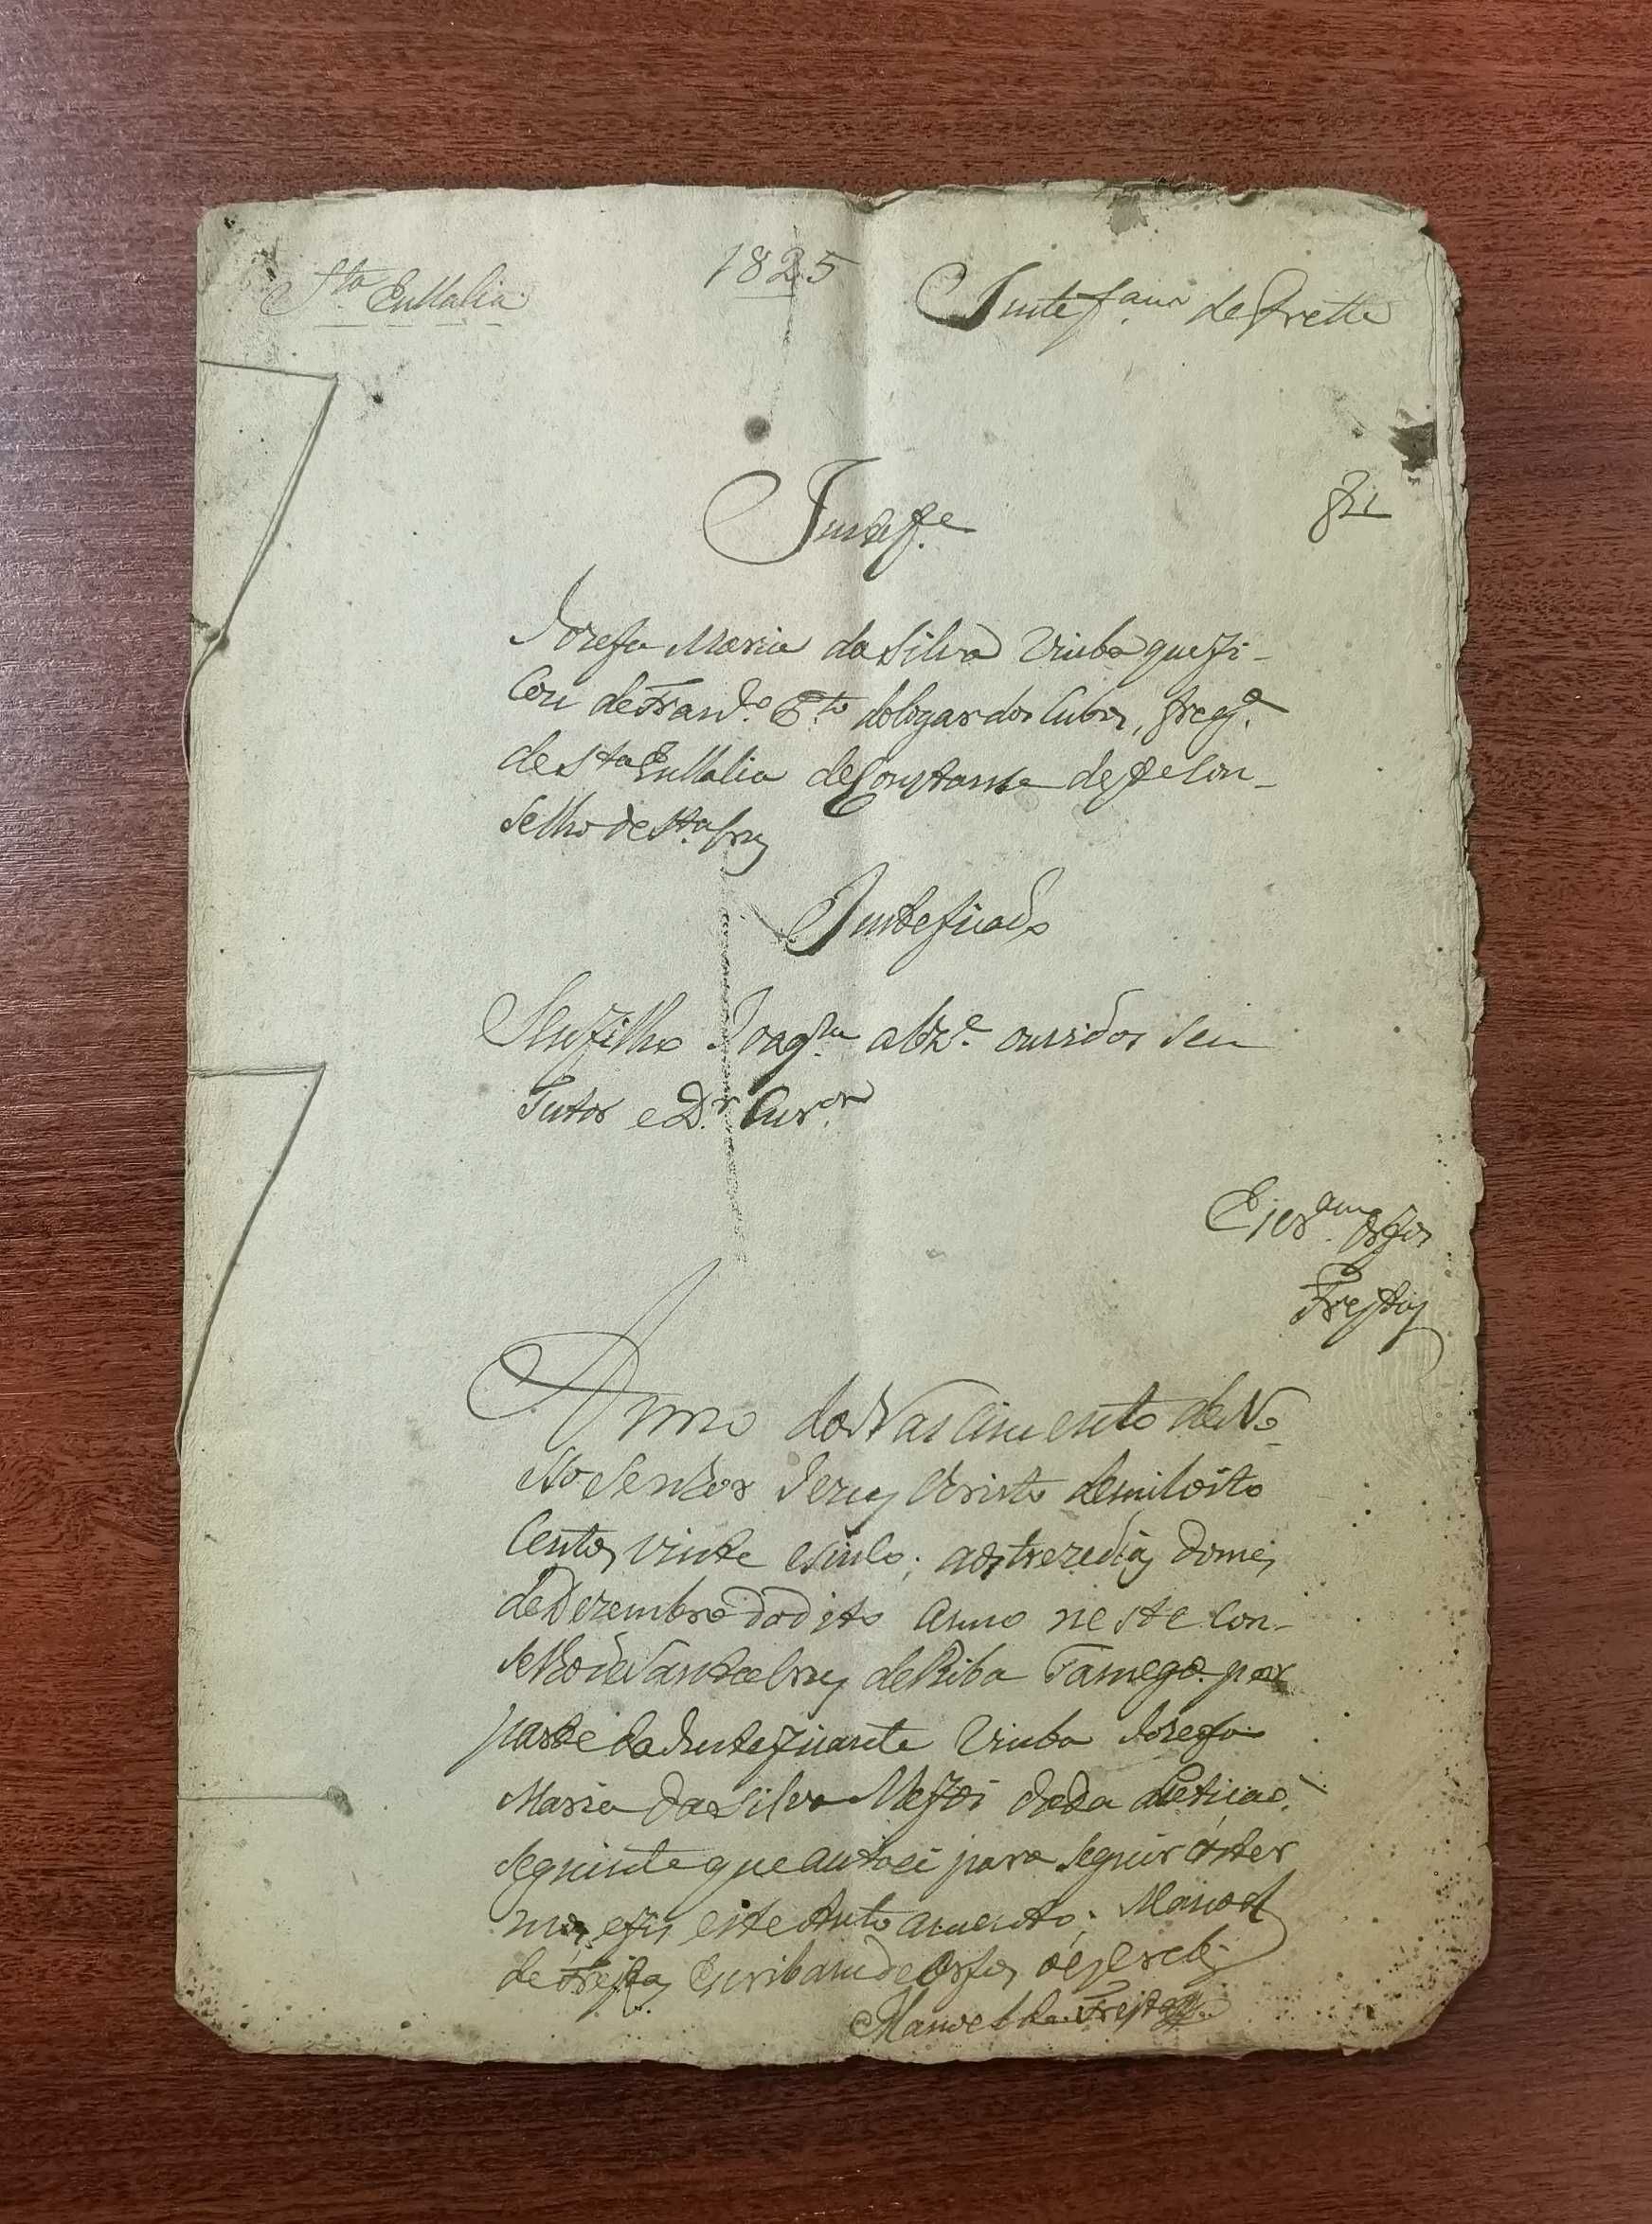 Sta Eullalia
1825
Justef.am de
Justef.e
Jozefa Maria da Silva Viuba que fi-
cou de Fran.co do logar dos Cubos, freg.a
de Sta Eullalia de Constance deste Con-
selho de Sta Cruz
Justeficado
Seu filho Joaq.m abz.e ouvidos seu
Tutor e D.r Cur.or
Freitas
Anno do Nascimento de No-
sso Senhor Jezus Christo de mil oito
centos vinte e sinco, aos treze dias do mes
de Dezembro do dito anno neste Con-
selho de Santa Cruz de Riba Tamega por
parte da Justeficante Viuba Jozefa
Maria da Silva Me foi dada a Peticaõ
seguinte que autoei para seguir os ter
mos, e fis este Auto amento, Manoel
de Freitas Escribam de Orfos o escreby
Manoel de Freitas